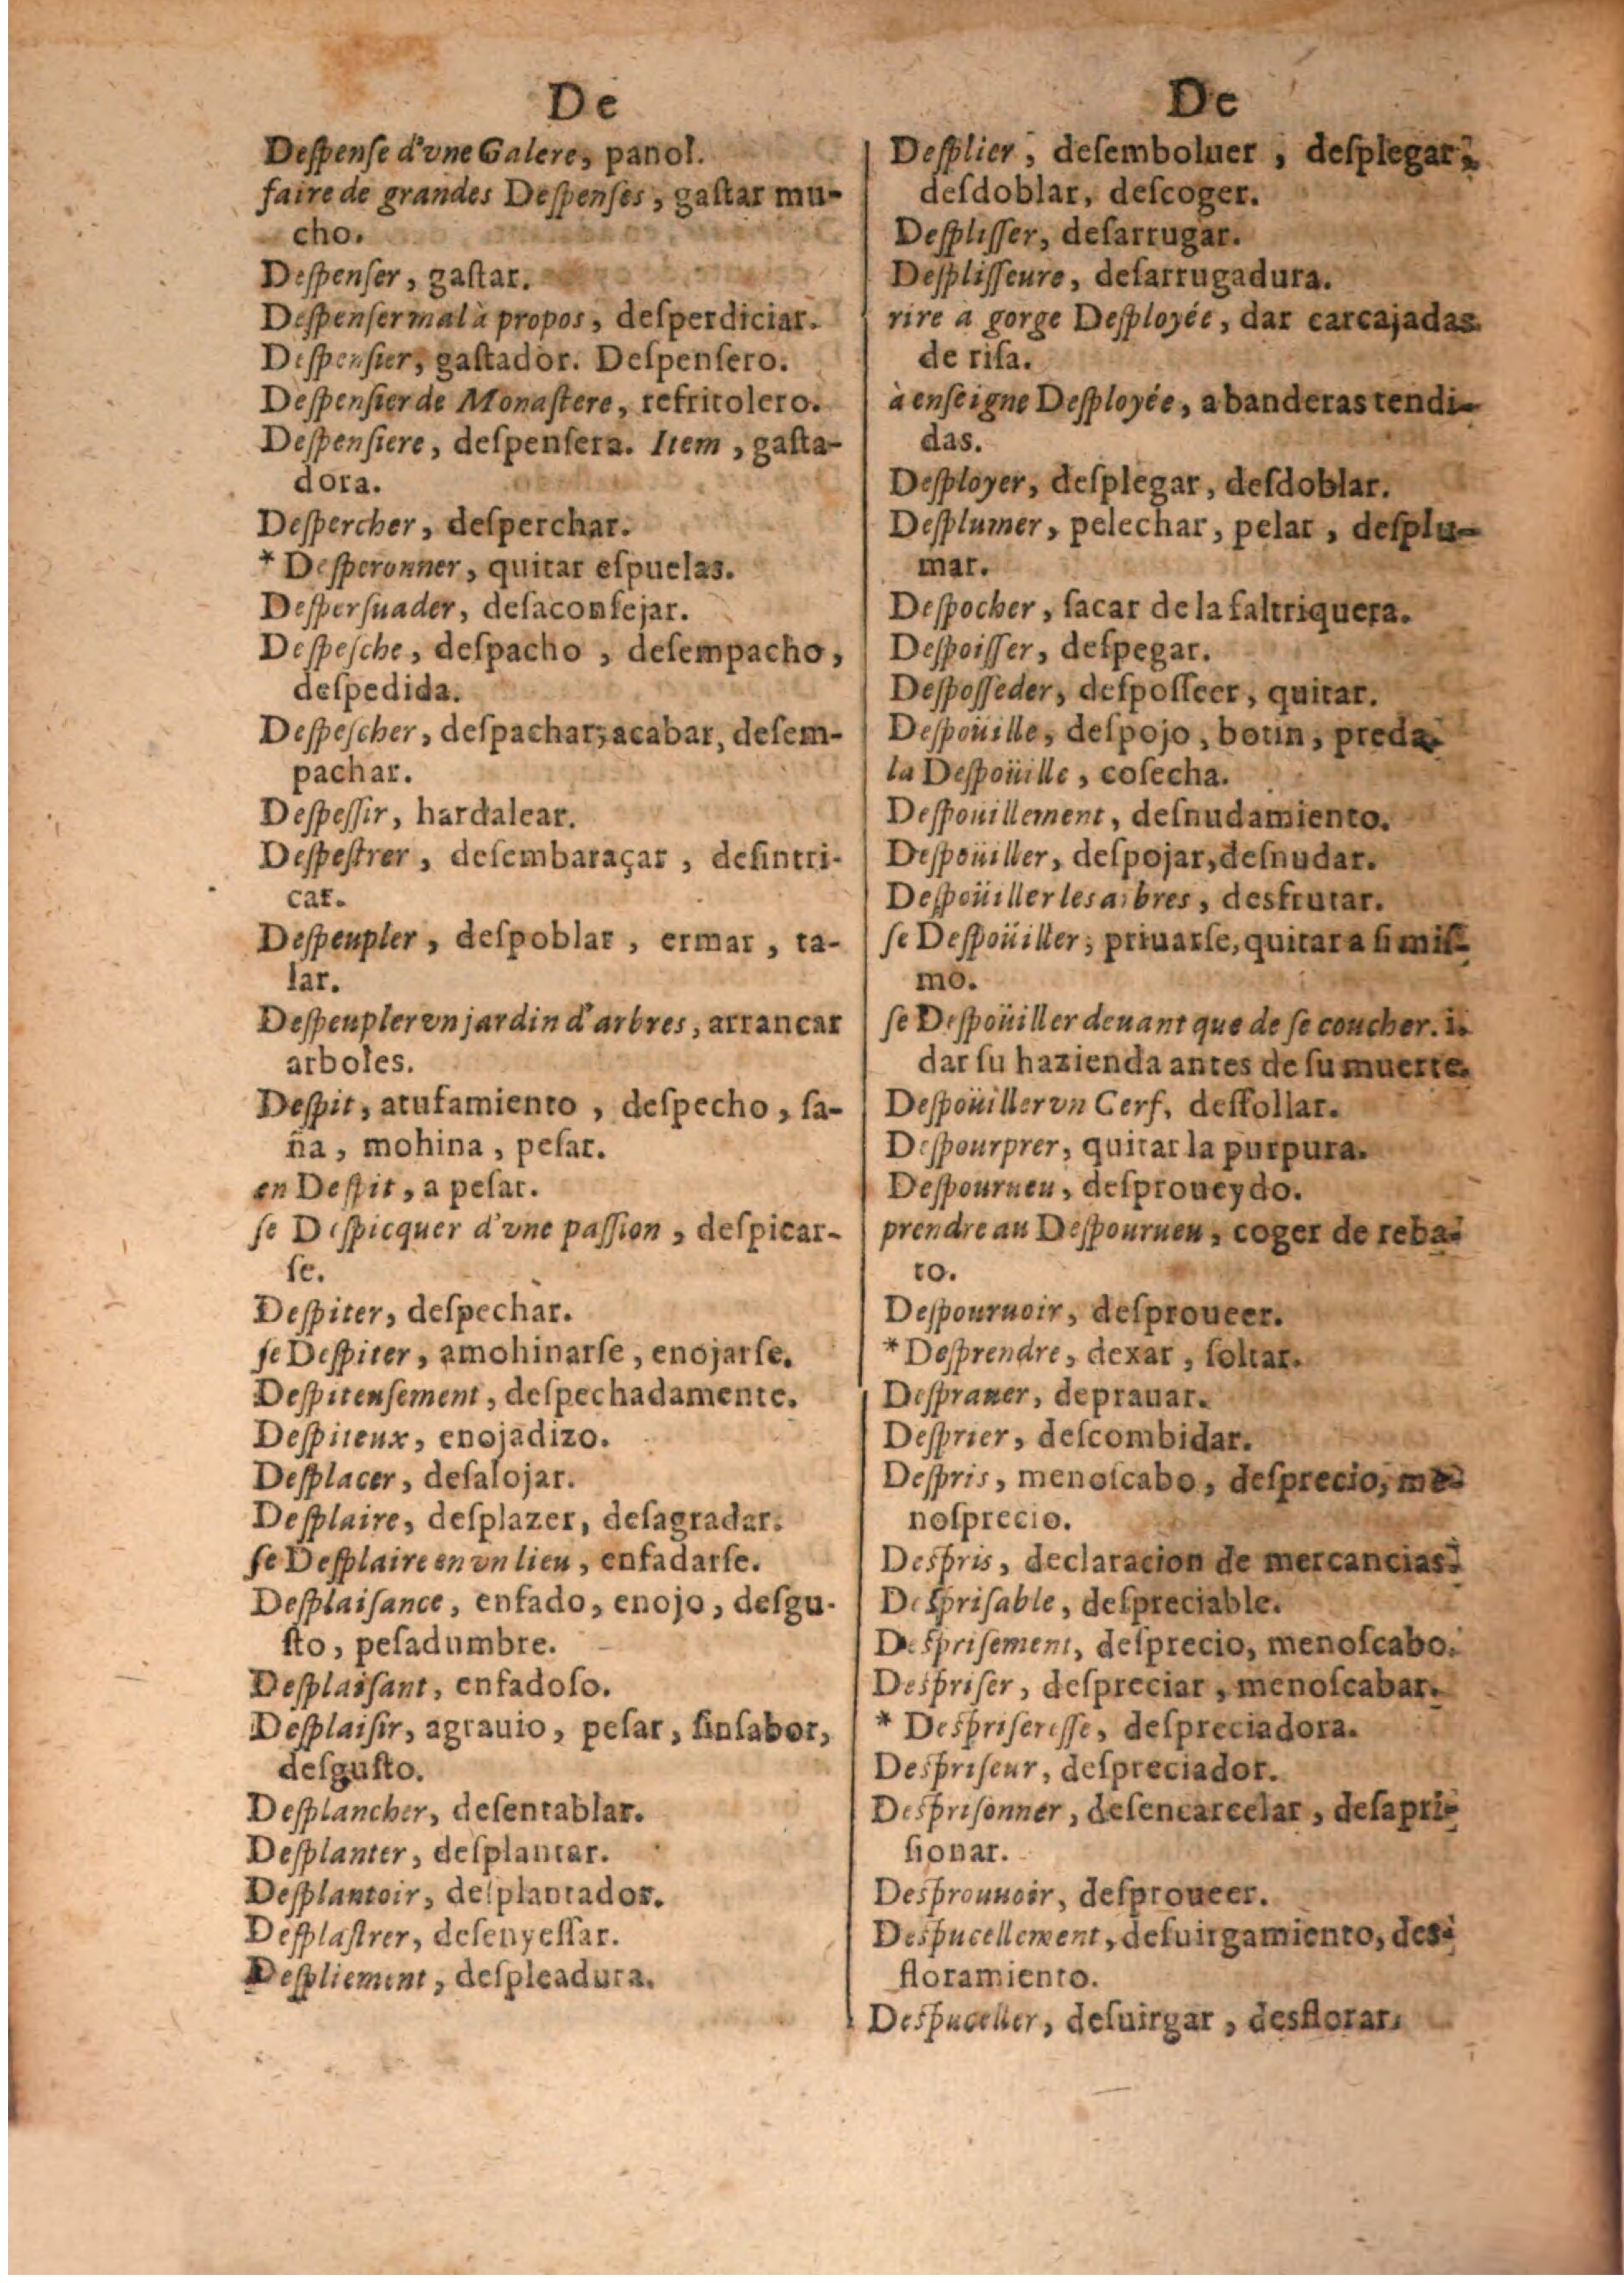 De
Deſpenſe d'vne Galere, panol.
faire de grandes Deſpenſes, gaſtar mu-
cho.
Deſpenſer, gaſtar.
Deſpenſer mal à propos, deſperdiciar.
Deſpenſier, gaſtador. Deſpenſero.
Deſpenſier de Monaſtere, refritolero.
Deſpenſiere, deſpenſera. Item, gaſta-
dora.
Deſpercher, deſperchar.
* Deſperonner, quitar eſpuelas.
Deſperſuader, deſaconſejar.
Deſpeſche, deſpacho, deſempacho,
deſpedida.
Deſpeſcher, deſpachar, acabar, deſem-
pachar.
Deſpeſſir, hardalear.
Deſpeſtrer, deſembaraçar, deſintri-
car.
Deſpeupler, deſpoblar, ermar, ta-
lar.
Deſpeupler vn jardin d'arbres, arrancar
arboles.
Deſpit, atufamiento, deſpecho, ſa-
ña, mohina, peſar.
en Deſpit, a peſar.
ſe Deſpicquer d'vne paſſion, deſpicar-
ſe.
Deſpiter, deſpechar.
ſe Deſpiter, amohinarſe, enojarſe.
Deſpiteuſement, deſpechadamente.
Deſpiteux, enojadizo.
Deſplacer, deſalojar.
Deſplaire, deſplazer, deſagradar.
ſe Deſplaire en vn lieu, enfadarſe.
Deſplaiſance, enfado, enojo, deſgu-
ſto, peſadumbre.
Deſplaiſant, enfadoſo.
Deſplaiſir, agrauio, peſar, ſinſabor,
deſguſto.
Deſplancher, deſentablar.
Deſplanter, deſplantar.
Deſplantoir, deſplantador.
Deſplaſtrer, deſenyeſſar.
Deſpliement, deſpleadura.
De
Deſplier, deſemboluer, deſplegar,
deſdoblar, deſcoger.
Deſpliſſer, deſarrugar.
Deſpliſſeure, deſarrugadura.
rire a gorge Deſployée, dar carcajadas
de riſa.
à enſeigne Deſployée, a banderas tendi-
das.
Deſployer, deſplegar, deſdoblar.
Deſplumer, pelechar, pelar, deſplu-
mar.
Deſpocher, ſacar de la faltriquera.
Deſpoiſſer, deſpegar.
Deſpoſſeder, deſpoſſeer, quitar.
Deſpoüille, deſpojo, botin, preda.
la Deſpoüille, coſecha.
Deſpouillement, deſnudamiento.
Deſpoüiller, deſpojar, deſnudar.
Deſpoüiller les arbres, desfrutar.
ſe Deſpoüiller, priuarſe, quitar a ſi miſ-
mo.
ſe Deſpoüiller deuant que de ſe coucher. i.
dar ſu hazienda antes de ſu muerte.
Deſpoüiller vn Cerf, deſſollar.
Deſpourprer, quitar la purpura.
Deſpourueu, deſproueydo.
prendre au Deſpourueu, coger de reba-
to.
Deſpouruoir, deſproueer.
* Deſprendre, dexar, ſoltar.
Deſprauer, deprauar.
Deſprier, deſcombidar.
Deſpris, menoſcabo, deſprecio, me-
noſprecio.
Deſpris, declaracion de mercancias.
Deſpriſable, deſpreciable.
Deſpriſement, deſprecio, menoſcabo.
Deſpriſer, deſpreciar, menoſcabar.
* Deſpriſereſſe, deſpreciadora.
Deſpriſeur, deſpreciador.
Deſpriſonner, deſencarcelar, deſapri-
ſionar.
Desprouuoir, deſproueer.
Despucellement, deſuirgamiento, des-
floramiento.
Despuceller, deſuirgar, desflorar.